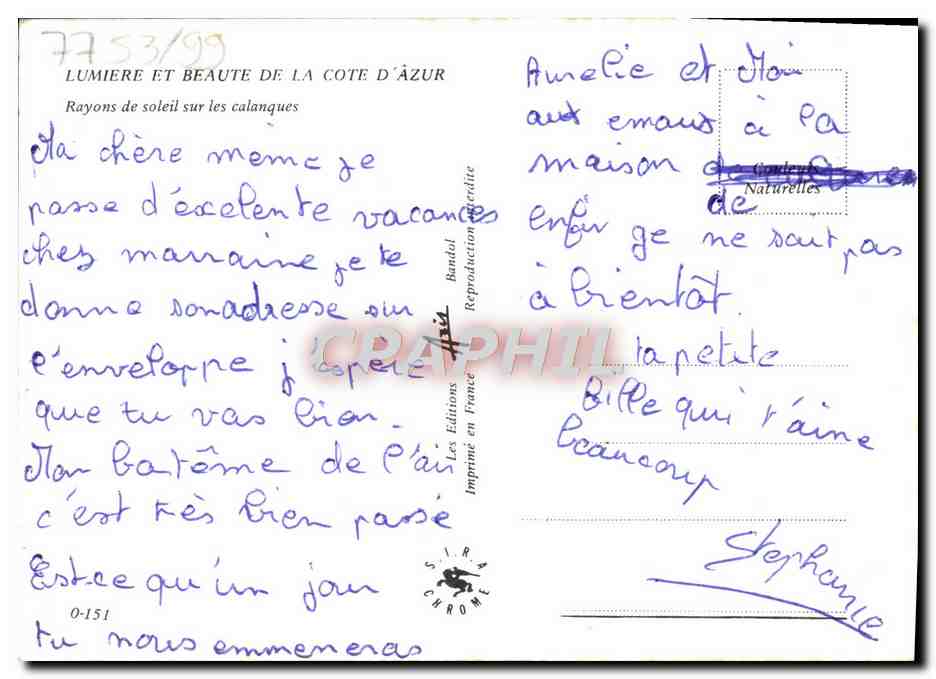 7753/99
LUMIERE ET BEAUTE DE LA COTE D'ÂZUR
Rayons de soleil sur les calanques
Ma chère mémé je
passe d'éxcelente vacances
chez marraine je te
donne son adresse sur
l'enveloppe j'espère
que tu vas bien.
Mon batême de l'air
c'est très bien passé
Est-ce qu'un jour
tu nous emmeneras
0-151
Les Editions Aris Bandol
Imprimé en France Reproduction interdite
S.I.R.A
CHROME
CPAPHIL
Aurelie et Moi
aux emaux à la
maison de
Couleurs
Naturelles
enfin je ne sait pas
à bientôt.
ta petite
fille qui t'aime
beaucoup
Stephanie